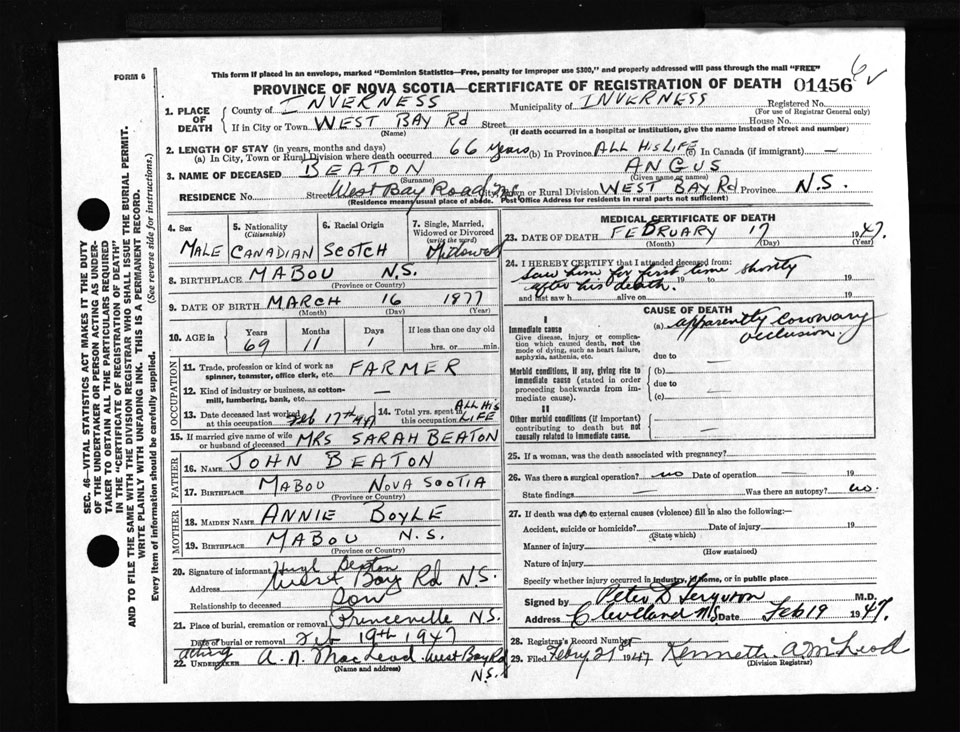 FORM 6
This form if placed in an envelope, marked "Dominion Statistics—Free, penalty for improper use $300," and properly addressed will pass through the mail "FREE"
PROVINCE OF NOVA SCOTIA—CERTIFICATE OF REGISTRATION OF DEATH 01456 6 ✓
SEC. 46—VITAL STATISTICS ACT MAKES IT THE DUTY OF THE UNDERTAKER OR PERSON ACTING AS UNDERTAKER TO OBTAIN ALL THE PARTICULARS REQUIRED IN THE "CERTIFICATE OF REGISTRATION OF DEATH" AND TO FILE THE SAME WITH THE DIVISION REGISTRAR WHO SHALL ISSUE THE BURIAL PERMIT.
WRITE PLAINLY WITH UNFADING INK. THIS IS A PERMANENT RECORD.
Every item of information should be carefully supplied. (See reverse side for instructions.)
1. PLACE OF DEATH County of INVERNESS Municipality of INVERNESS Registered No.
(For use of Registrar General only)
If in City or Town WEST BAY Rd Street House No.
(Name) (If death occurred in a hospital or institution, give the name instead of street and number)
2. LENGTH OF STAY (in years, months and days)
(a) In City, Town or Rural Division where death occurred 66 years (b) In Province ALL HIS LIFE (c) In Canada (if immigrant) —
3. NAME OF DECEASED BEATON ANGUS
(Surname) (Given name or names)
RESIDENCE No. Street West Bay Road City, Town or Rural Division WEST BAY Rd Province N.S.
(Residence means usual place of abode. Post Office Address for residents in rural parts not sufficient)
4. Sex 5. Nationality (Citizenship) 6. Racial Origin 7. Single, Married, Widowed or Divorced (write the word)
MALE CANADIAN SCOTCH Widowed
8. BIRTHPLACE MABOU N.S.
(Province or Country)
9. DATE OF BIRTH MARCH 16 1877
(Month) (Day) (Year)
10. AGE in Years Months Days If less than one day old
69 11 1 hrs. or min.
OCCUPATION
11. Trade, profession or kind of work as spinner, teamster, office clerk, etc. FARMER
12. Kind of industry or business, as cotton-mill, lumbering, bank, etc.
13. Date deceased last worked at this occupation Feb 17th 1947 14. Total yrs. spent in this occupation ALL HIS LIFE
15. If married give name of wife or husband of deceased MRS SARAH BEATON
FATHER
16. NAME JOHN BEATON
17. BIRTHPLACE MABOU NOVA SCOTIA
(Province or Country)
MOTHER
18. MAIDEN NAME ANNIE BOYLE
19. BIRTHPLACE MABOU N.S.
(Province or Country)
20. Signature of informant Hugh Beaton
Address West Bay Rd N.S.
Relationship to deceased Son
21. Place of burial, cremation or removal Princeville N.S.
Date of burial or removal Feb 19th 1947
acting
22. UNDERTAKER A. N. MacLeod. West Bay Rd
(Name and address) N.S.
MEDICAL CERTIFICATE OF DEATH
23. DATE OF DEATH FEBRUARY 17 1947.
(Month) (Day) (Year)
24. I HEREBY CERTIFY that I attended deceased from:
Saw him for first time shortly 19
after his death.
and last saw h alive on 19
CAUSE OF DEATH
I
Immediate cause (a) apparently coronary occlusion.
Give disease, injury or complication which caused death, not the mode of dying, such as heart failure, asphyxia, asthenia, etc.
due to —
Morbid conditions, if any, giving rise to immediate cause (stated in order proceeding backwards from immediate cause) (b) —
due to —
(c) —
II
Other morbid conditions (if important) contributing to death but not causally related to immediate cause. —
25. If a woman, was the death associated with pregnancy?
26. Was there a surgical operation? no Date of operation — 19
State findings — Was there an autopsy? no.
27. If death was due to external causes (violence) fill in also the following:—
Accident, suicide or homicide? Date of injury 19
(State which)
Manner of injury
(How sustained)
Nature of injury
Specify whether injury occurred in industry, in home, or in public place
Signed by Peter S Ferguson M.D.
Address Cleveland N.S. Date Feb 19 1947.
28. Registrar's Record Number
29. Filed Febry 21st 1947 Kenneth A. McLeod
(Division Registrar)